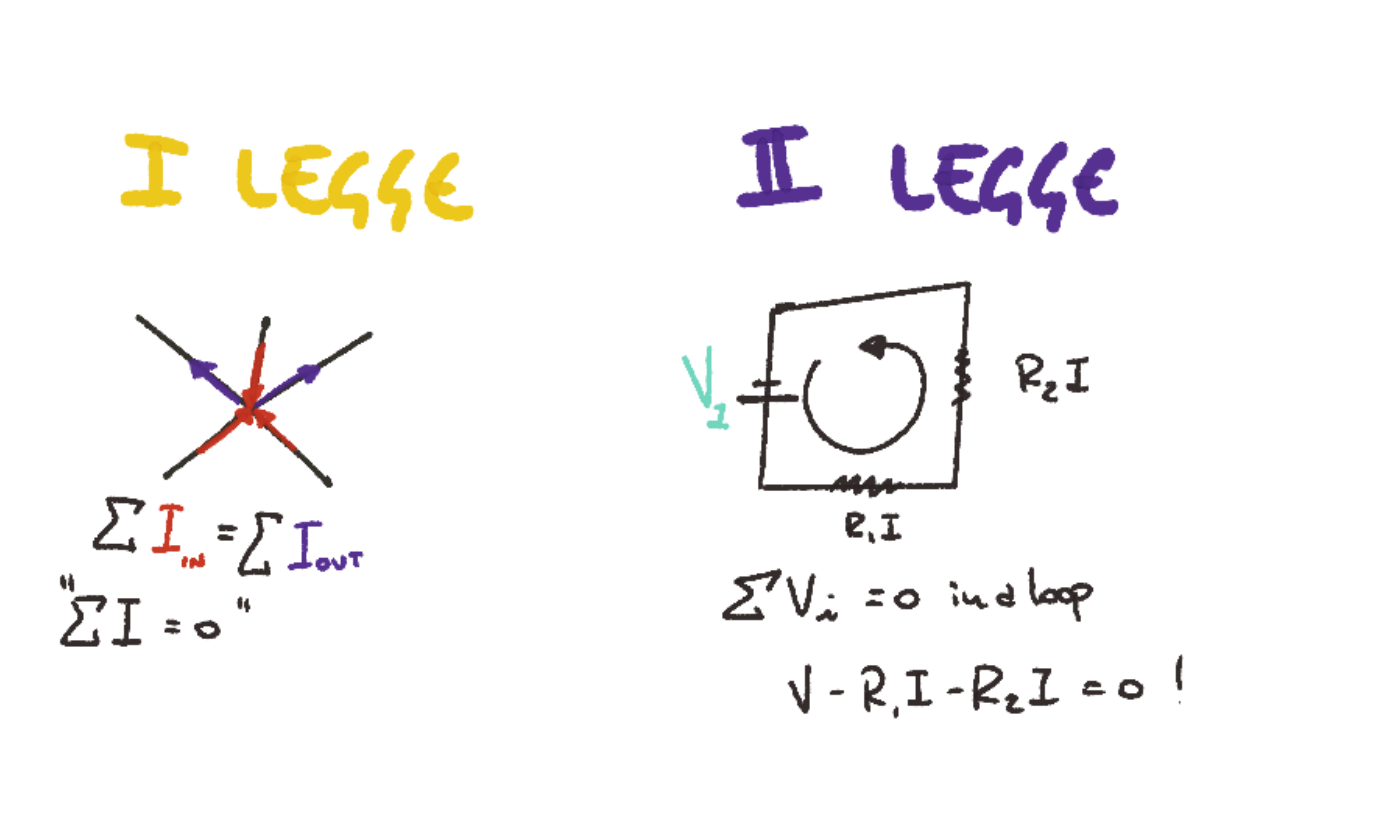 I LEGGE
ΣI_IN = ΣI_OUT
"ΣI = 0"
II LEGGE
V_1
R_2I
R_1I
ΣV_i = 0 in a loop
V - R_1I - R_2I = 0 !